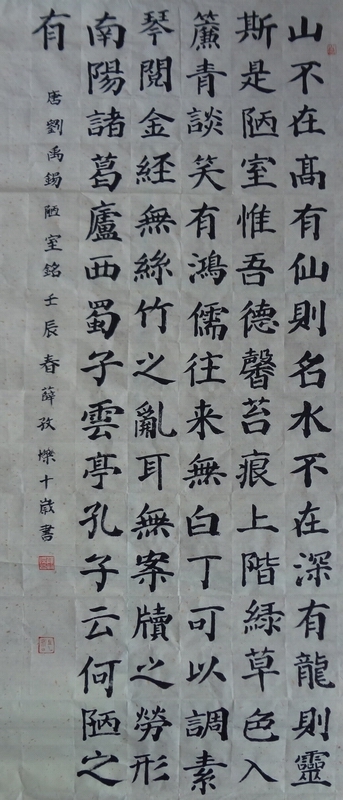 山不在高有仙則名水不在深有龍則靈
斯是陋室惟吾德馨苔痕上階綠草色入
簾青談笑有鴻儒往来無白丁可以調素
琴閱金経無絲竹之亂耳無案牘之勞形
南陽諸葛廬西蜀子雲亭孔子云何陋之
有
唐劉禹錫陋室銘壬辰春薛孜爍十歲書